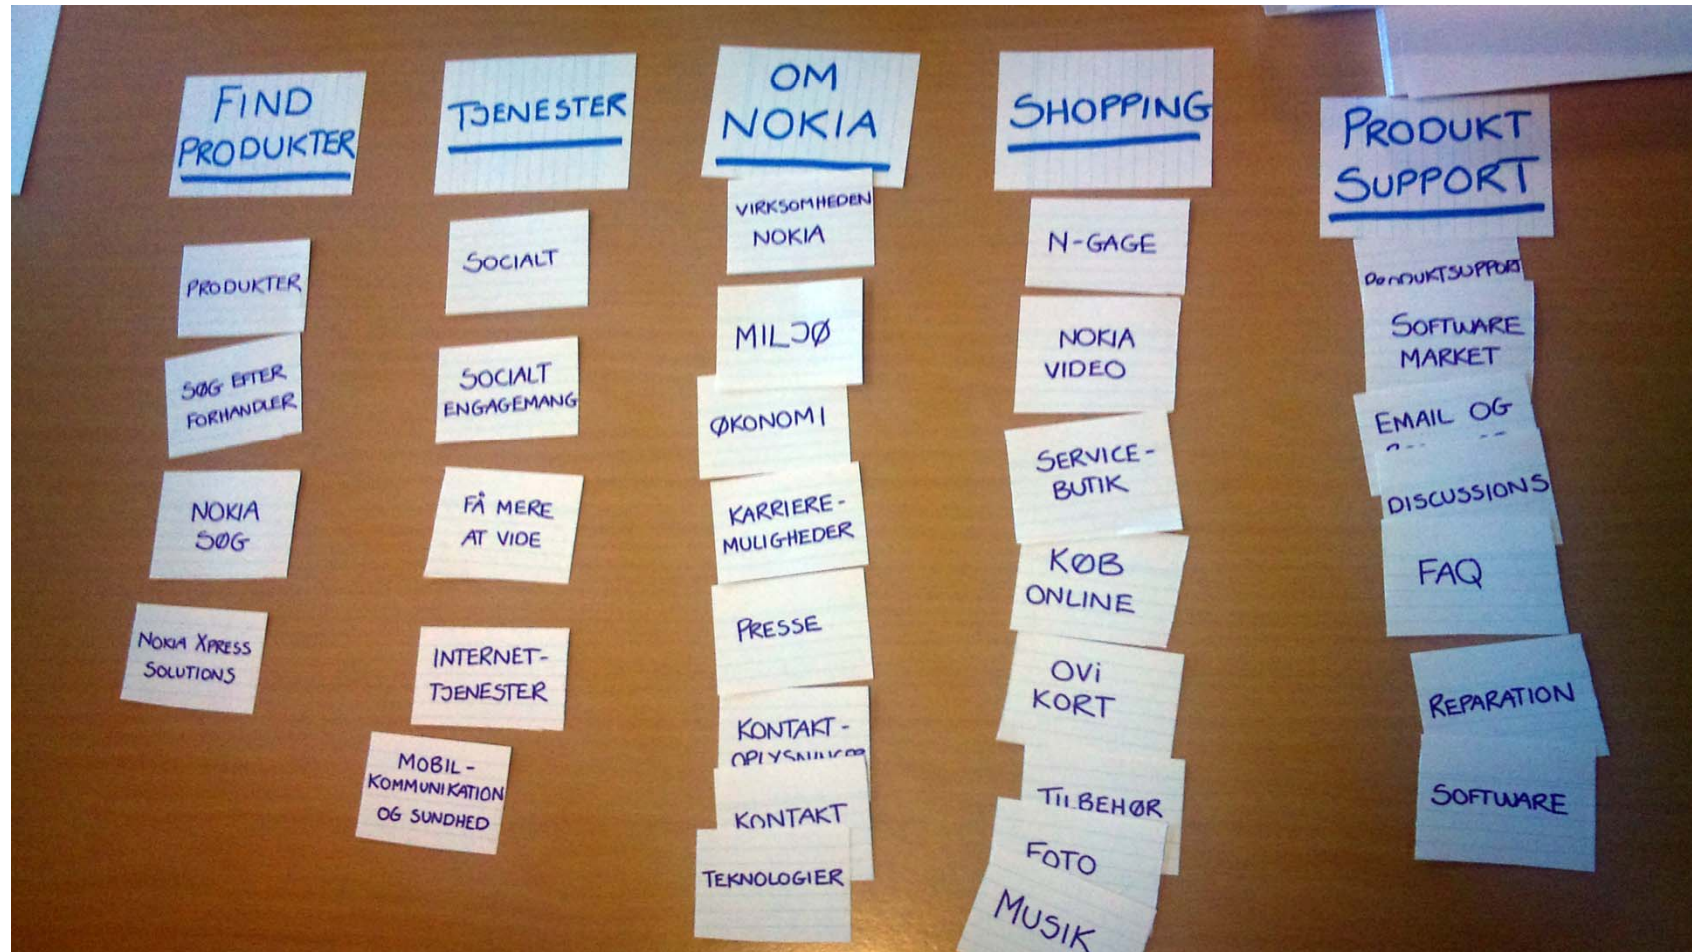 FIND
PRODUKTER
PRODUKTER
SØG EFTER
FORHANDLER
NOKIA
SØG
NOKIA XPRESS
SOLUTIONS
TJENESTER
SOCIALT
SOCIALT
ENGAGEMANG
FÅ MERE
AT VIDE
INTERNET-
TJENESTER
MOBIL-
KOMMUNIKATION
OG SUNDHED
OM
NOKIA
VIRKSOMHEDEN
NOKIA
MILJØ
ØKONOMI
KARRIERE-
MULIGHEDER
PRESSE
KONTAKT-
OPLYSNINGER
KONTAKT
TEKNOLOGIER
SHOPPING
N-GAGE
NOKIA
VIDEO
SERVICE-
BUTIK
KØB
ONLINE
OVI
KORT
TILBEHØR
FOTO
MUSIK
PRODUKT
SUPPORT
PRODUKTSUPPORT
SOFTWARE
MARKET
EMAIL OG
DISCUSSIONS
FAQ
REPARATION
SOFTWARE